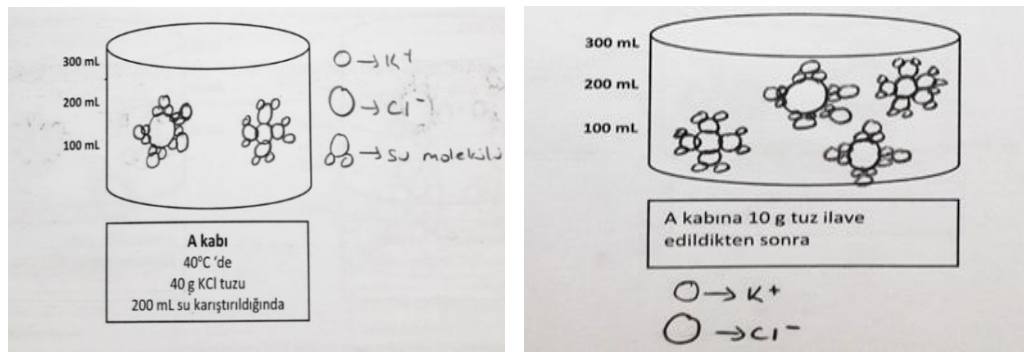 300 mL
200 mL
100 mL
→ K+
→ Cl-
→ Su molekülü
A kabı
40°C 'de
40 g KCl tuzu
200 mL su karıştırıldığında
300 mL
200 mL
100 mL
A kabına 10 g tuz ilave
edildikten sonra
→ K+
→ Cl-